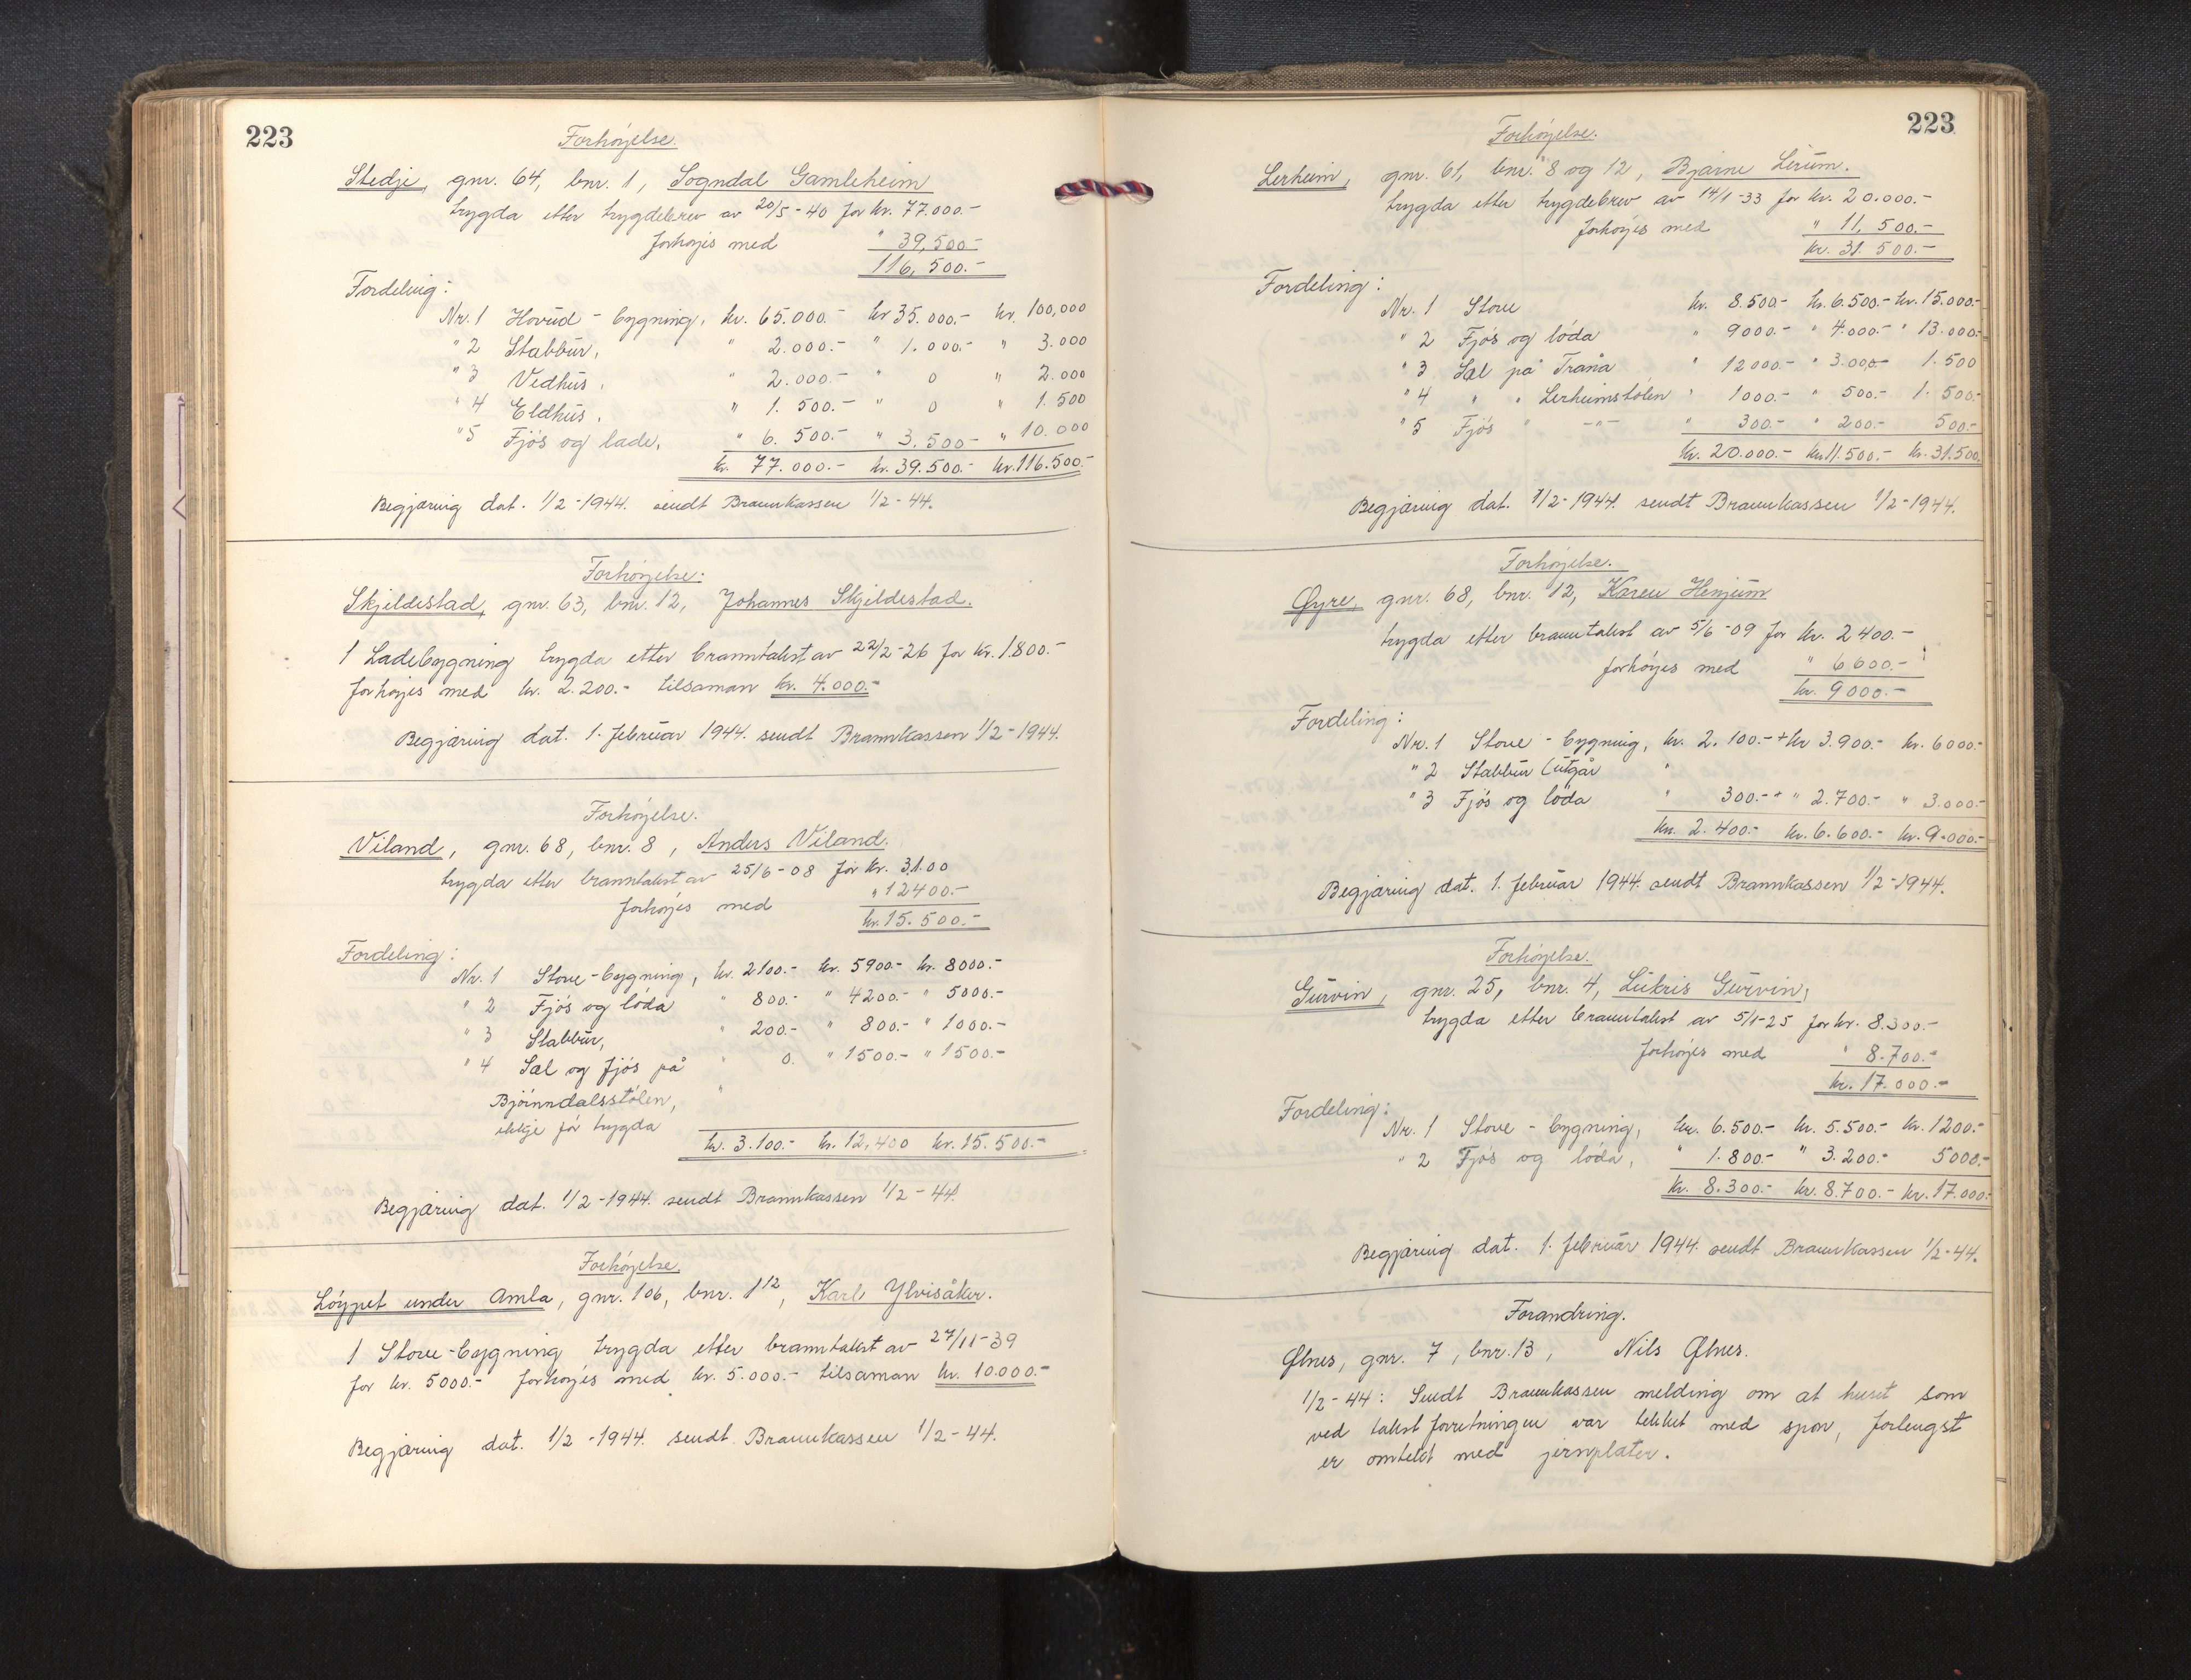 223
Forhøyelse.
Stedje, gnr. 64, bnr. 1, Sogndal Gamleheim
trygda etter trygdebrev av 20/5-40 for kr. 77.000.-
forhøyes med " 39,500.-
116,500.-
Fordeling:
Nr. 1 Hovud-bygning, kr. 65.000.- kr 35.000.- kr. 100,000
" 2 Stabbur, " 2.000.- " 1.000.- " 3.000
" 3 Vedhus, " 2.000.- " 0 " 2.000
" 4 Eldhus, " 1.500.- " 0 " 1.500
" 5 Fjøs og lade, " 6.500.- " 3.500- " 10.000
kr. 77.000.- kr. 39.500.- kr. 116.500.-
Begjæring dat. 1/2-1944. sendt Brannkassen 1/2-44.
Forhøyelse:
Skjeldestad, gnr. 63, bnr. 12, Johannes Skjeldestad.
1 Ladebygning trygda etter branntakst av 22/2-26 for kr. 1.800.-
forhøyes med kr. 2.200.- tilsaman kr. 4.000.-
Begjæring dat. 1. februar 1944. sendt Brannkassen 1/2-1944.
Forhøyelse.
Viland, gnr. 68, bnr. 8, Anders Viland.
trygda etter branntakst av 25/6-08 for kr. 31.00
" 12400.-
forhøyes med
kr. 15.500.-
Fordeling:
Nr. 1 Stove-bygning, kr. 2100.- kr. 5900.- kr. 8000.-
" 2 Fjøs og løda " 800.- " 4200.- " 5000.-
" 3 Stabbur, " 200.- " 800.- " 1000.-
" 4 Sæl og fjøs på " 0. " 1500.- " 1500.-
Bjørnndalsstølen, "
ikkje før trygda
kr. 3.100.- kr. 12,400 kr. 15.500.-
Begjæring dat. 1/2-1944. sendt Brannkassen 1/2-44.
Forhøyelse.
Løypet under Amla, gnr. 106, bnr. 1 12, Karl Ylvisåker.
1 Stove-bygning trygda etter branntakst av 27/11-39
for kr. 5000.- forhøyes med kr. 5.000.- tilsaman kr. 10.000.-
Begjæring dat. 1/2-1944. sendt Brannkassen 1/2-44.
223
Forhøyelse.
Lerheim, gnr. 61, bnr. 8 og 12, Bjarne Lerum.
trygda etter trygdebrev av 14/1-33 for kr. 20.000.-
forhøyes med " 11,500.-
kr. 31.500.-
Fordeling:
Nr. 1 Stove kr. 8.500.- kr. 6.500.- kr. 15.000.-
" 2 Fjøs og løda " 9000.- " 4.000.- " 13.000.-
" 3 Sæl på Tråna " 12000.- " 3.000.- 1.500
" 4 " " Lerheimstølen " 1000.- " 500.- 1.500.-
" 5 Fjøs " -"- " 300.- " 200.- 500.-
kr. 20.000.- kr. 11.500.- kr. 31.500.
Begjæring dat. 1/2-1944. sendt Brannkassen 1/2-1944.
Forhøyelse.
Øyre, gnr. 68, bnr. 12, Karen Henjum
trygda etter branntakst av 5/6-09 for kr. 2400.-
forhøyes med " 6600.-
kr. 9000.-
Fordeling:
Nr. 1 Stove-bygning, kr. 2.100.- + kr 3.900.- kr. 6000.-
" 2 Stabbur (utgår "
" 3 Fjøs og løda " 300.- + " 2.700.- " 3.000.-
kr. 2.400.- kr. 6.600.- kr. 9.000.-
Begjæring dat. 1. februar 1944. sendt Brannkassen 1/2-1944.
Forhøyelse.
Gurvin, gnr. 25, bnr. 4, Lukris Gurvin,
trygda etter branntakst av 5/1-25 for kr. 8.300.-
forhøyes med " 8.700.-
kr. 17.000.-
Fordeling:
Nr. 1 Stove-bygning, kr. 6.500.- kr. 5.500.- kr. 1200.-
" 2 Fjøs og løda, " 1.800.- " 3.200.- 5000.-
kr. 8.300.- kr. 8.700.- kr. 17.000.-
Begjæring dat. 1. februar 1944. sendt Brannkassen 1/2-44.
Forandring.
Ølnes, gnr. 7, bnr. 13, Nils Ølnes.
1/2-44: Sendt Brannkassen melding om at huset som
ved takstforretningen var tekket med spon, forlengst
er omtekt med jernplater.